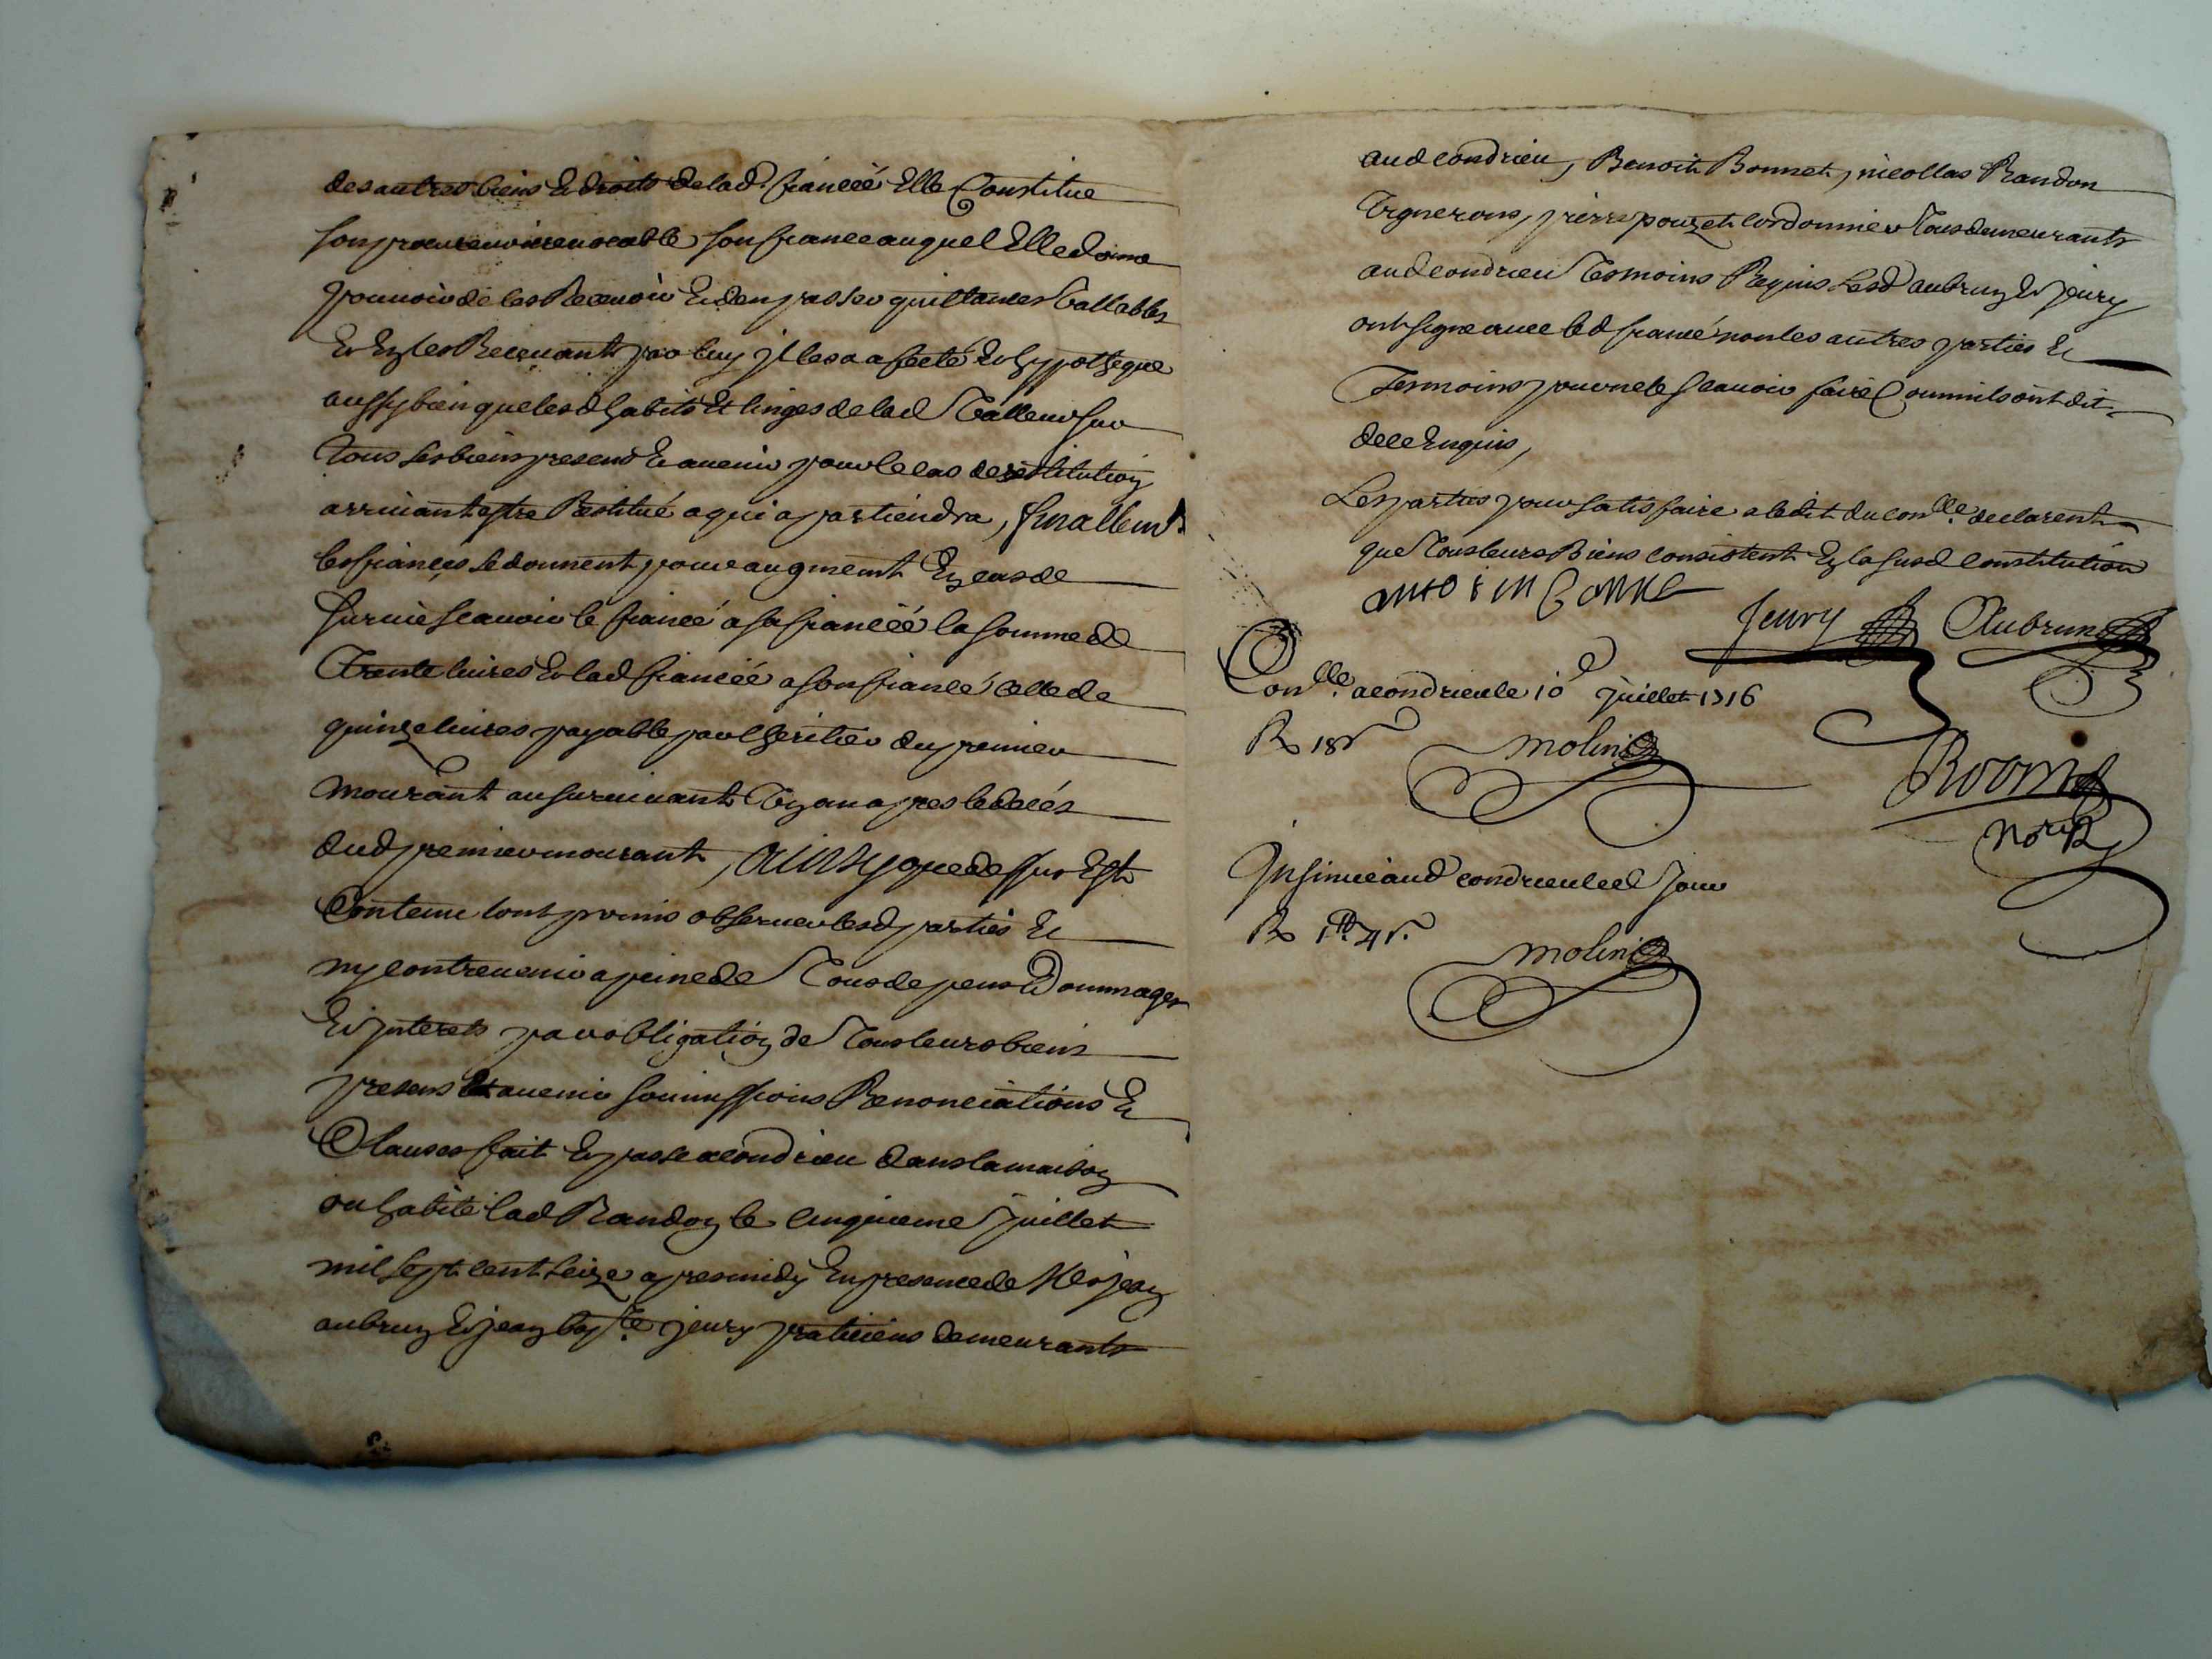 des autres biens & droits de lad. fiancéé Elle Constitue
son procureur irrevocable son fiance auquel Elle donne
pouvoir de les Recevoir & den passer quittances vallables
Et En les Recevant par luy jl les a affecté & hypotheque
aussy bien que lesd habits Et linges de lad valleur sur
Tous ses biens presens & avenir pour le cas de restitution
arrivant estre Restitué a qui apartiendra, finallemt
les fiances se donnent pour augment En cas de
survie scavoir le fiancé a sa fiancéé la somme de
Trente livres & lad fiancéé a son fiancé celle de
quinze livres payable par lheritier du premier
mourant au survivant Un an apres le decés
dud premier mourant, Ainsy que dessus Est
Contenu lont promis observer lesd parties &
ny contrevenir a peine de Tous depens Dommages
& jnterets par obligation de Tous leurs biens
presens Et avenir soumissions Renonciations &
Clauses fait & passe a condrieu dans la maison
ou habite lad Randon le cinquieme Juillet
mil sept cent seize apres midy En presence de Mes jean
aubrun & jean bapte. jeury praticiens demeurants
aud condrieu, Benoit Bonnet, nicollas Randon
Vignerons, pierre pouzet cordonnier Tous demeurants
aud condrieu Tesmoins Requis Lesd aubrun & jeury
ont signe avec led fiancé non les autres parties &
Tesmoins pour ne le scavoir faire Comm ils ont dit
de ce Enquis,
Les parties pour satisfaire a ledit du conlle. declarent
que Tous leurs Biens consistent En la susd Constitution
Jeury Aubrun
Conlle. a condrieu le 10e Juillet 1716
R 18s
molin
Roomy
Nore R
Insinué aud condrieu led Jour
R 1tt 4s.
molin